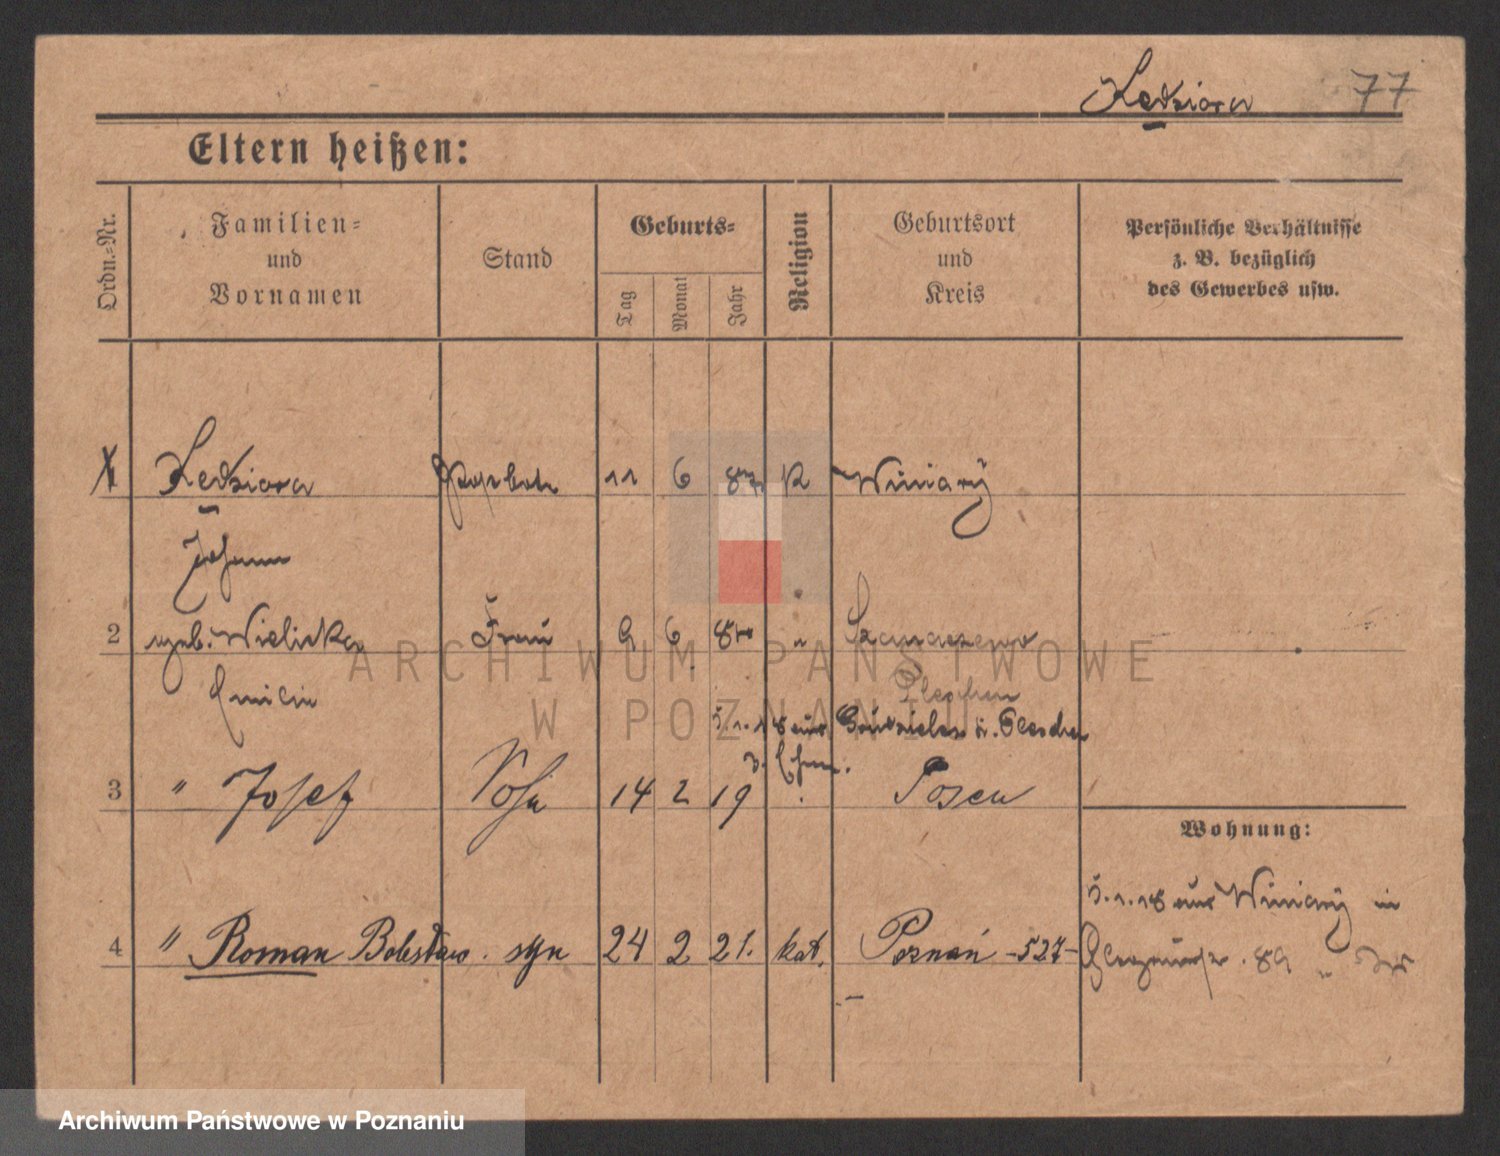 Kedziora 77
Eltern heißen:
Ordn.-Nr.
Familien-
und
Vornamen
Stand
Geburts-
Tag
Monat
Jahr
Religion
Geburtsort
und
Kreis
Persönliche Verhältnisse
z. B. bezüglich
des Gewerbes usw.
Kedziora 11 6 87 K Winiary
Johann
2 geb. Wieliska Frau 9 6
Emilie
Pleschen
5.1.18 aus
3 " Josef Sohn 14 2 19 Posen
Wohnung:
5.1.18 aus Winiary in
4 " Roman Bolesław. syn 24 2 21. kat. Poznań -527-
89
ARCHIWUM PAŃSTWOWE
W POZNANIU
Archiwum Państwowe w Poznaniu